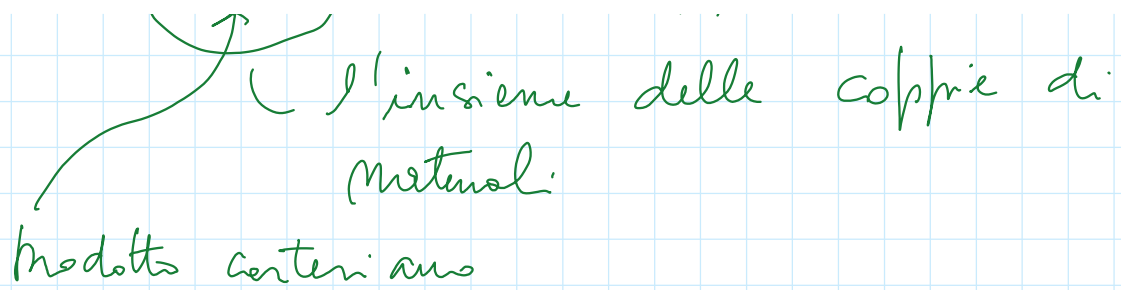 l'insieme delle coppie di
naturali
prodotto cartesiano